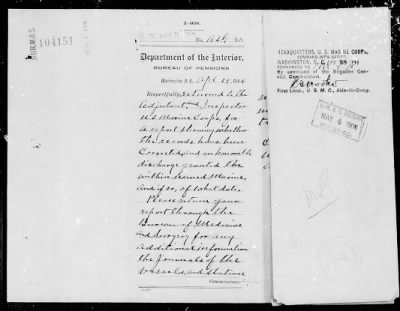 3-050.
104151
Department of the Interior,
BUREAU OF PENSIONS,
Respectfully returned to the
Adjutant and Inspector
U.S. Marine Corps for
a report showing whether
the records have been
corrected and an honorable
discharge granted the
within named Marine,
and if so, of what date.
Please return your
report through the
Bureau of Medicine
and Surgery for any
additional information
the Journals of the
Vessels and Stations
Commissioner.
HEADQUARTERS, U. S. MARINE CORPS,
COMMANDANT'S OFFICE,
WASHINGTON, D. C.,
By command of the Brigadier General,
Commandant:
First Lieut., U. S. M. C., Aide-de-Camp.
MAY